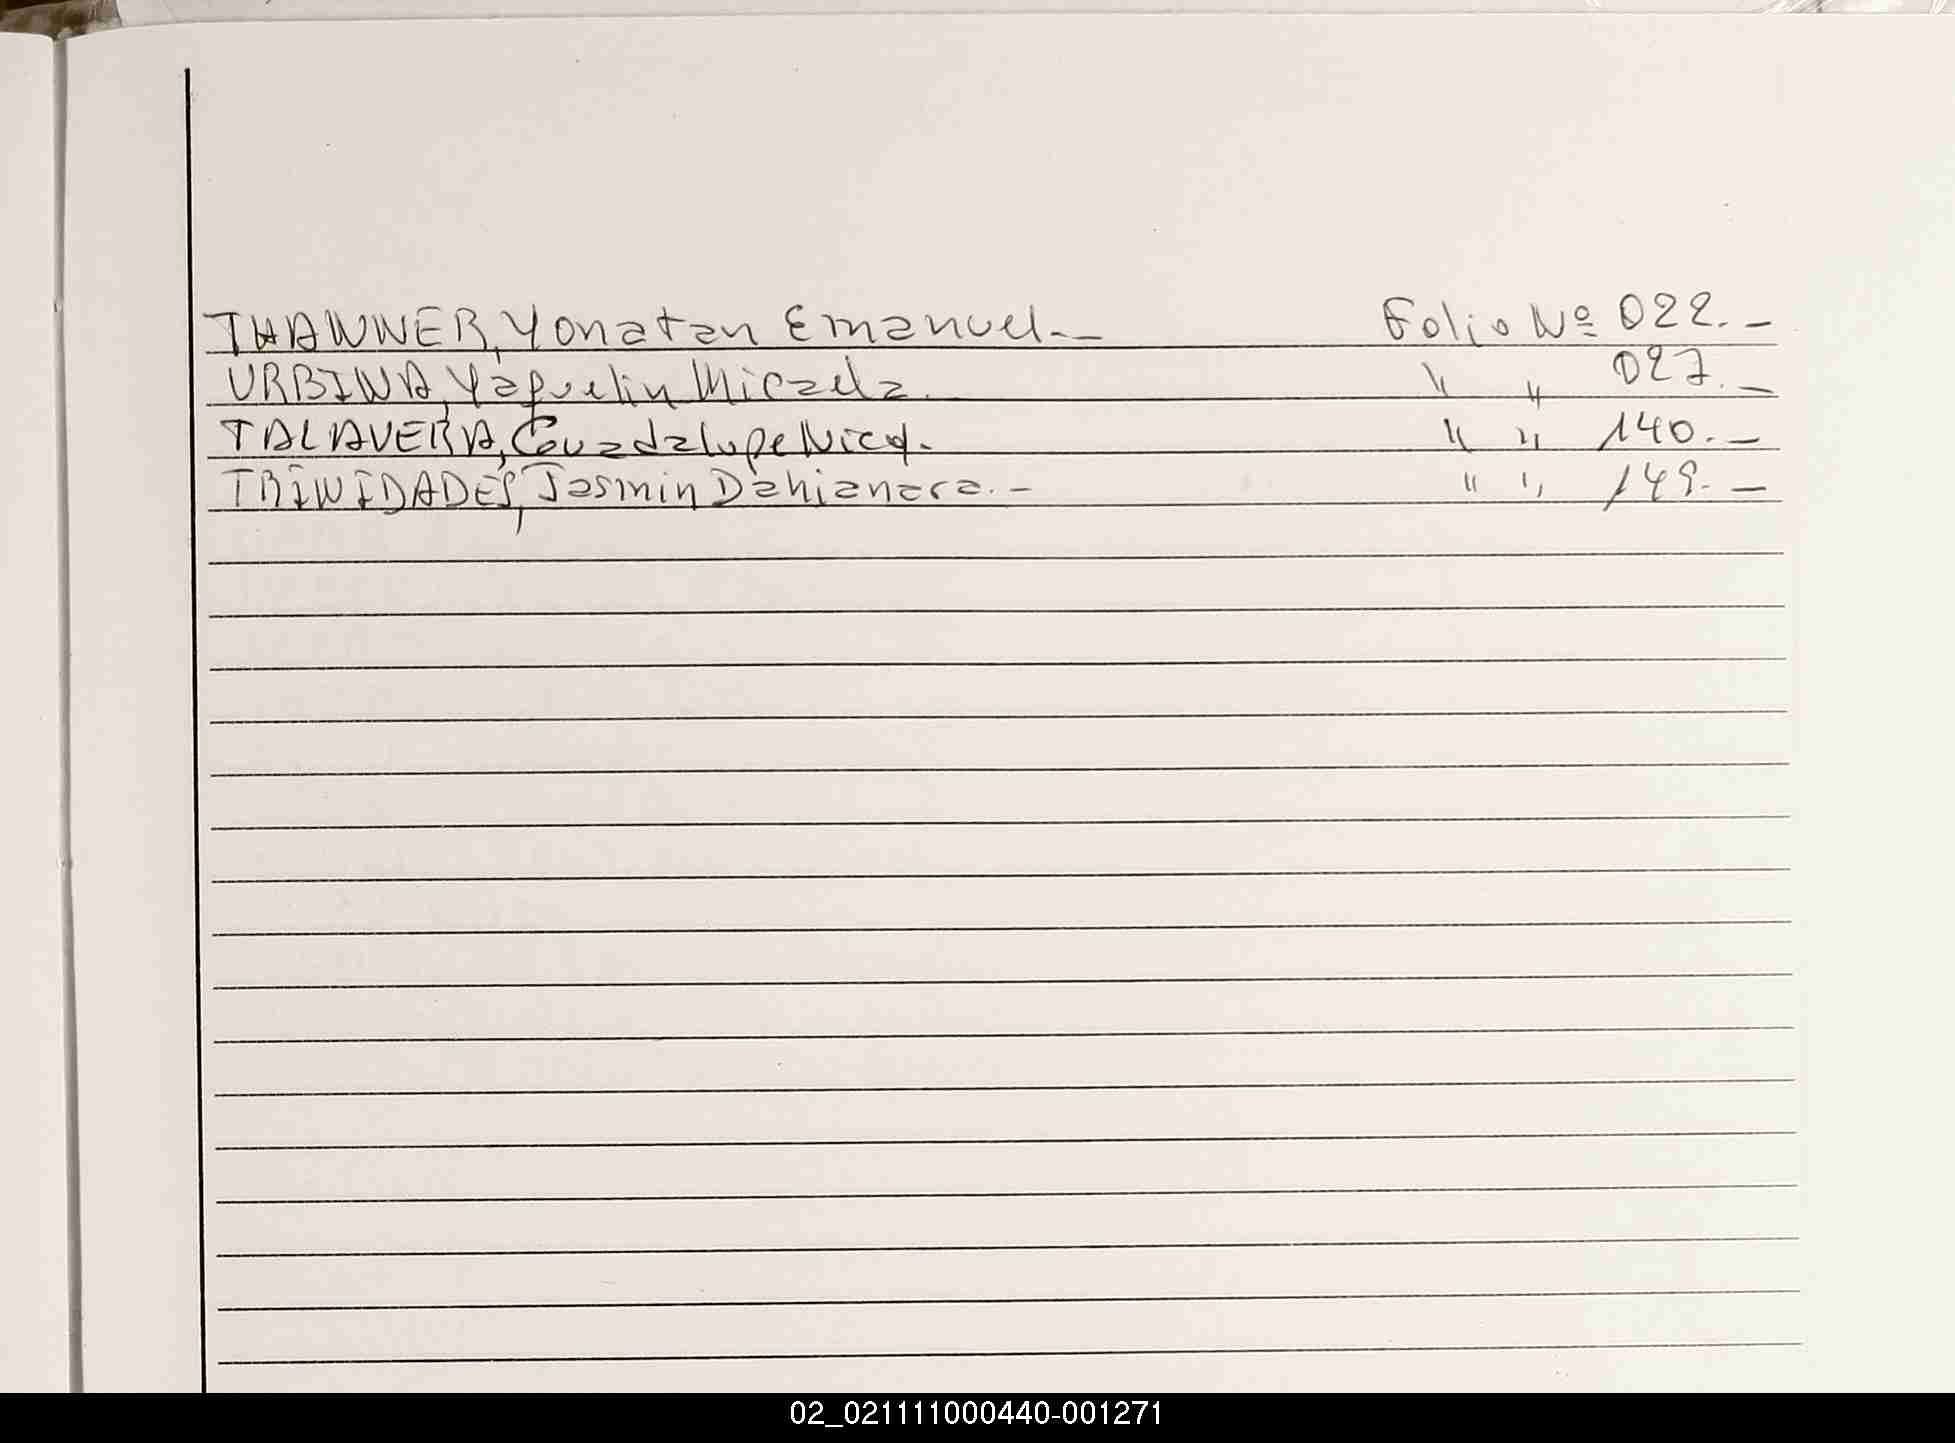 THANNER, Yonatan Emanuel.- Folio Nº 022.-
URBINA, Yaquelin Micaela. " " 027.-
TALAVERA, Guadalupe Nicol. " " 140.-
TRINIDADES, Jasmin Dahianara.- " " 149.-
02_021111000440-001271